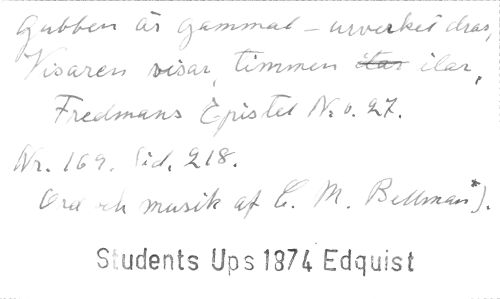 Gubben är gammal – urverket dras,
Visaren visar, timmen ilar,
Fredmans Epistel No. 27.
Nr. 169. Sid. 218.
Ord och musik af C. M. Bellman*).
Students Ups 1874 Edquist